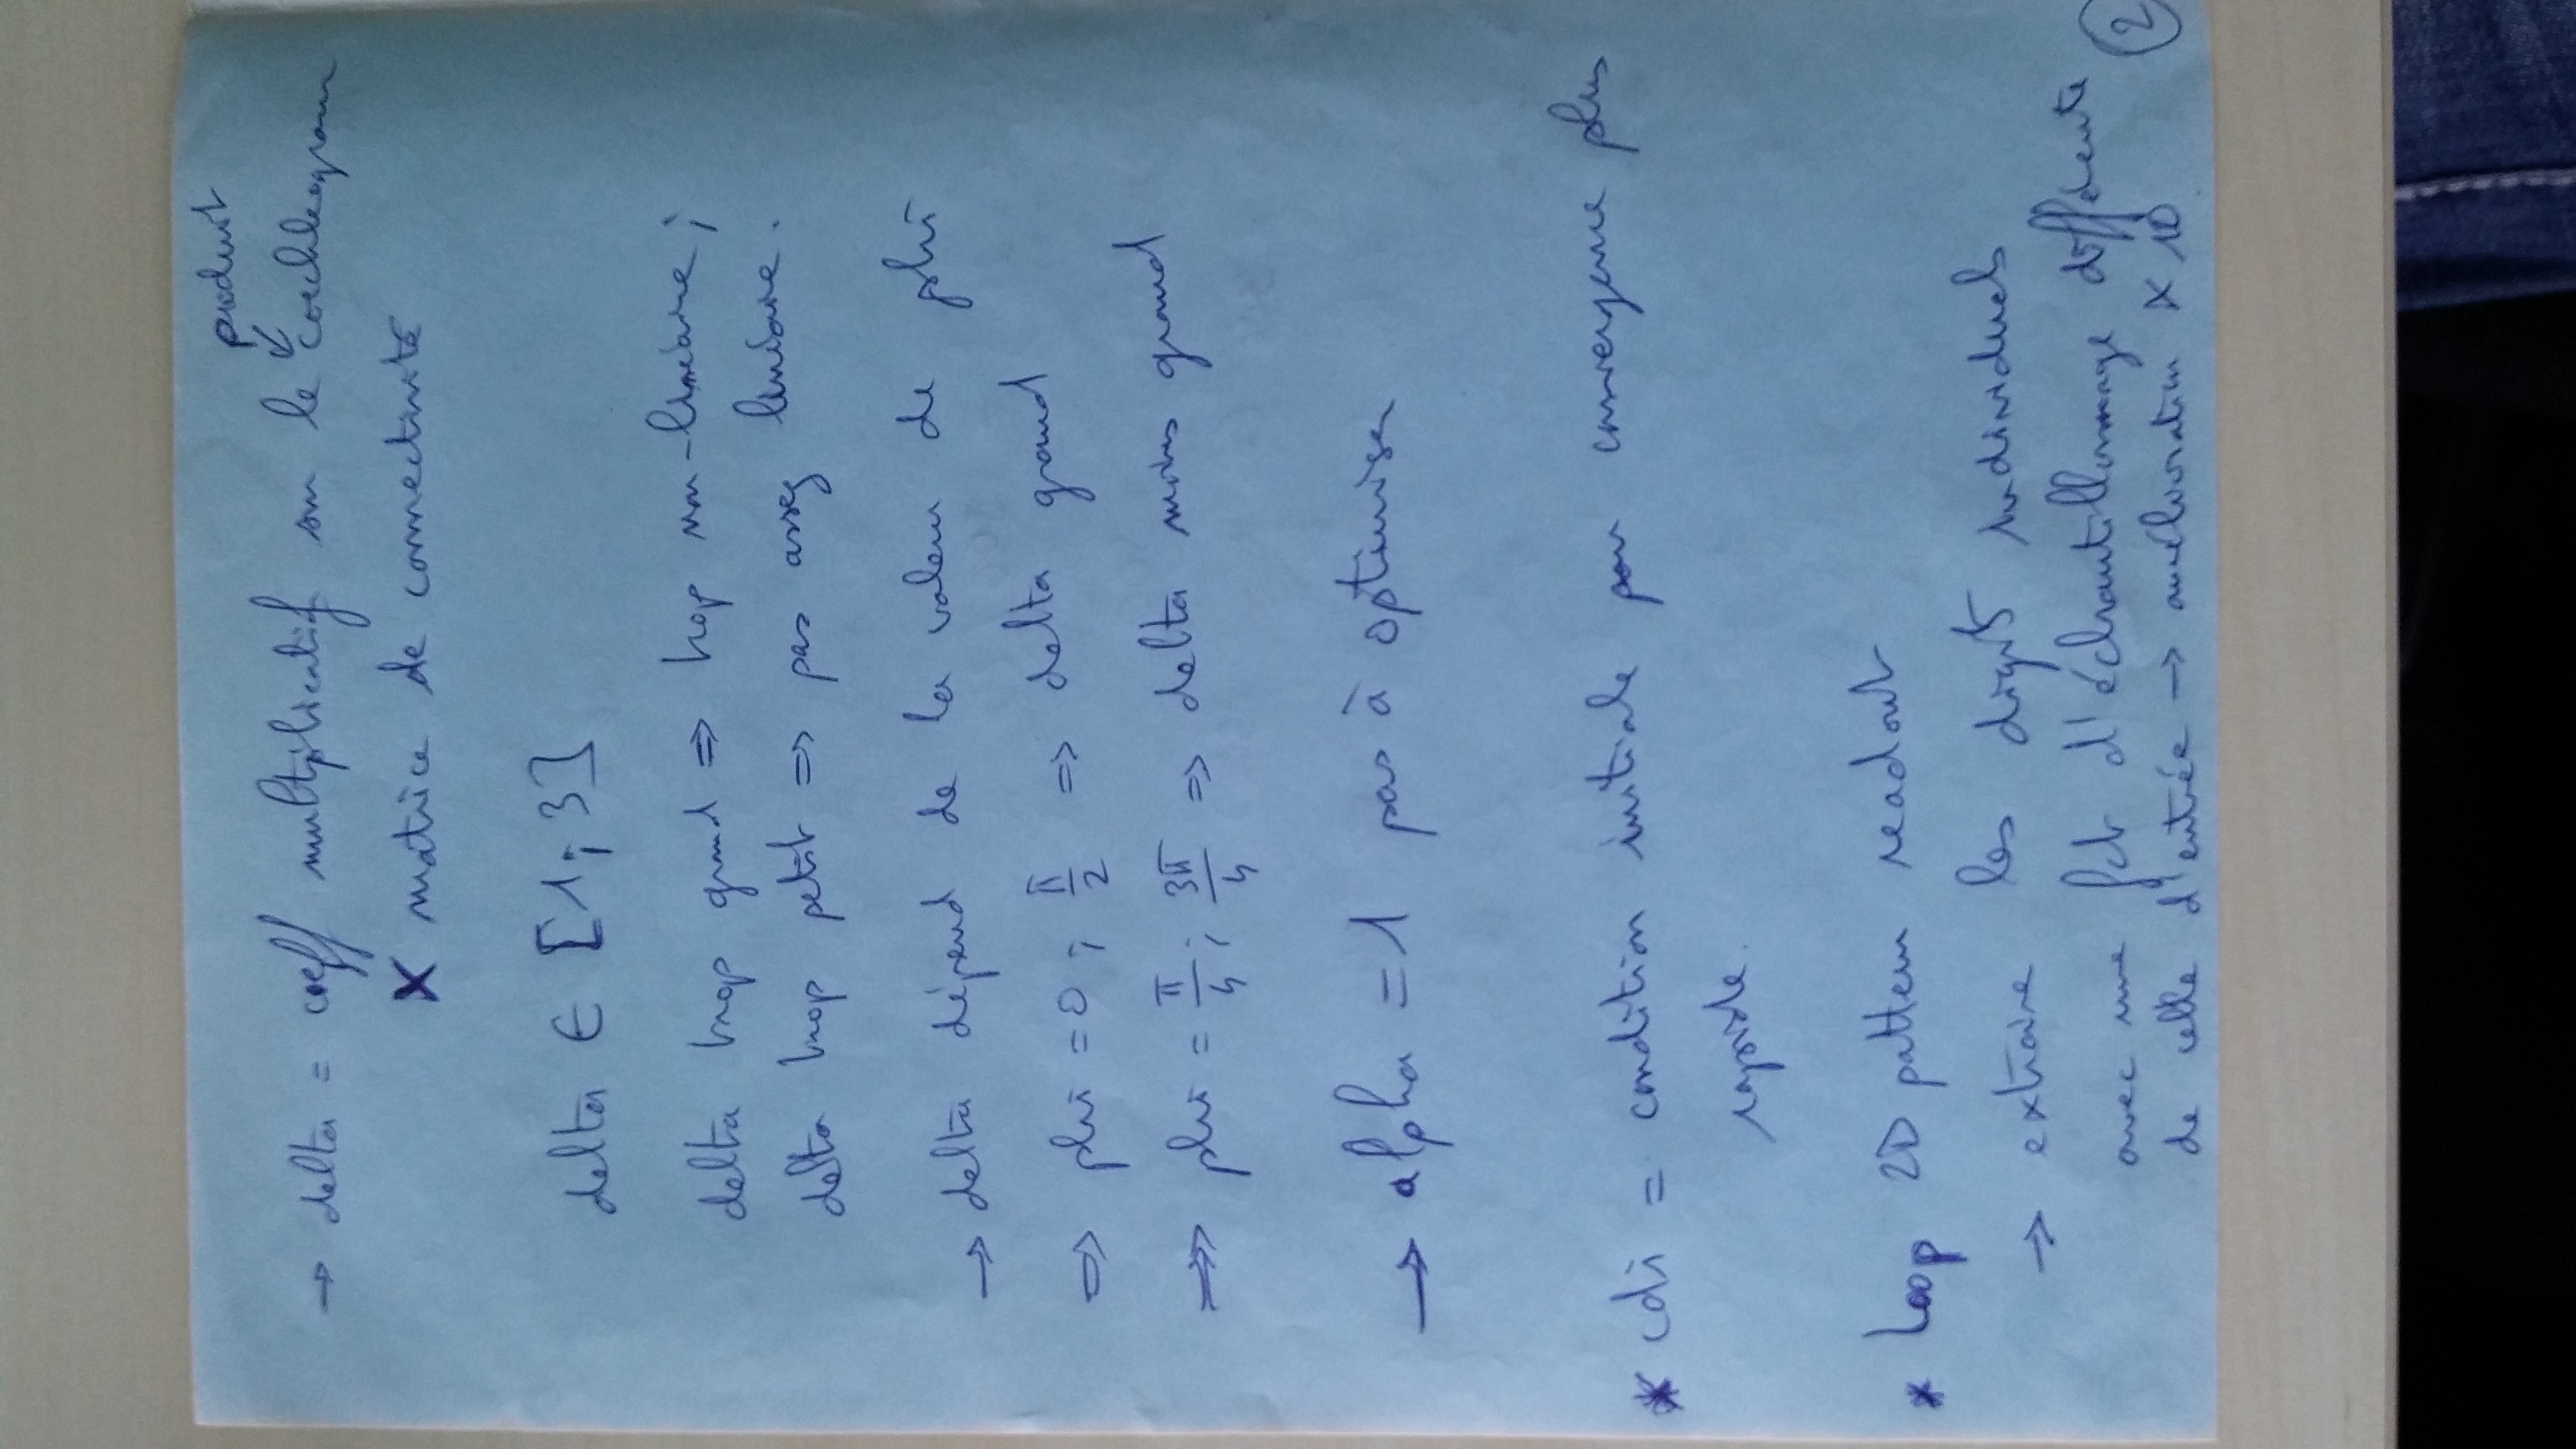 produit
→ delta = coeff multiplicatif sur le ↙ cochleogram
X matrice de connectivité
delta ∈ [1;3]
delta trop grand ⇒ trop non-linéaire;
delta trop petit ⇒ pas assez linéaire.
→ delta dépend de la valeur de phi
⇒ phi = 0 ; π/2 ⇒ delta grand
⇒ phi = π/4 ; 3π/4 ⇒ delta moins grand
→ alpha = 1 pas à optimiser
* cdi = condition initiale pour convergence plus
rapide.
* Loop 2D pattern readout
→ extraire les digits individuels
avec une fct d'échantillonnage différente
de celle d'entrée → amélioration X 10
2